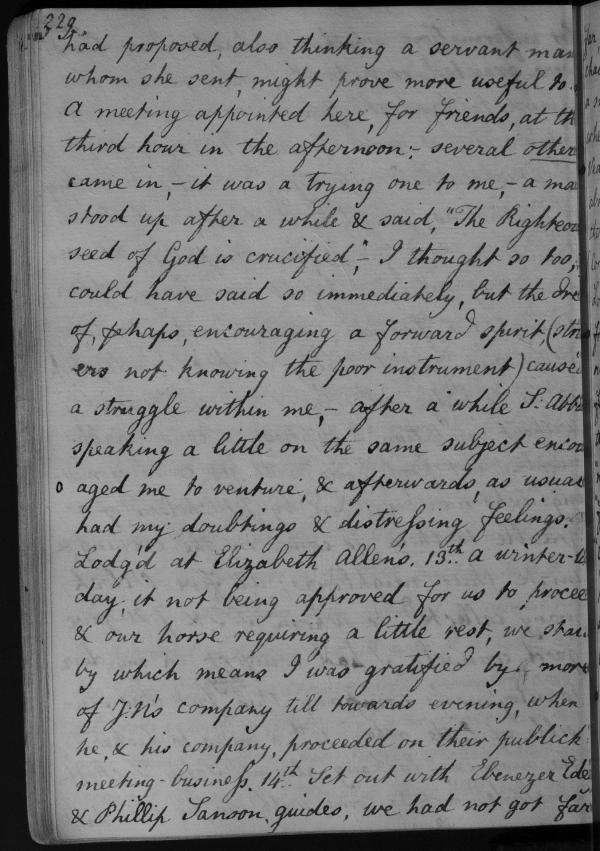 229
had proposed, also thinking a servant man
whom she sent, might prove more useful to.
A meeting appointed here, for friends, at th
third hour in the afternoon;- several other
came in,- it was a trying one to me,- a ma
stood up after a while & said, "The Righteou
seed of God is crucified",- I thought so too,
could have said so immediately, but the dre
of, phaps, encouraging a forward spirit, (stra
ers not knowing the poor instrument) cause
a struggle within me,- after a while S: Abb
speaking a little on the same subject encou
aged me to venture, & afterwards, as usual
had my doubtings & distressing feelings.
Lodg'd at Elizabeth Allen's. 13.th a winter-
day, it not being approved for us to procee
& our horse requiring a little rest, we stai
by which means I was gratified by more
of J:N's company till towards evening, when
he, & his company, proceeded on their publick
meeting-business. 14.th Set out with Ebenezer
& Phillip Sanson, guides, we had not got far